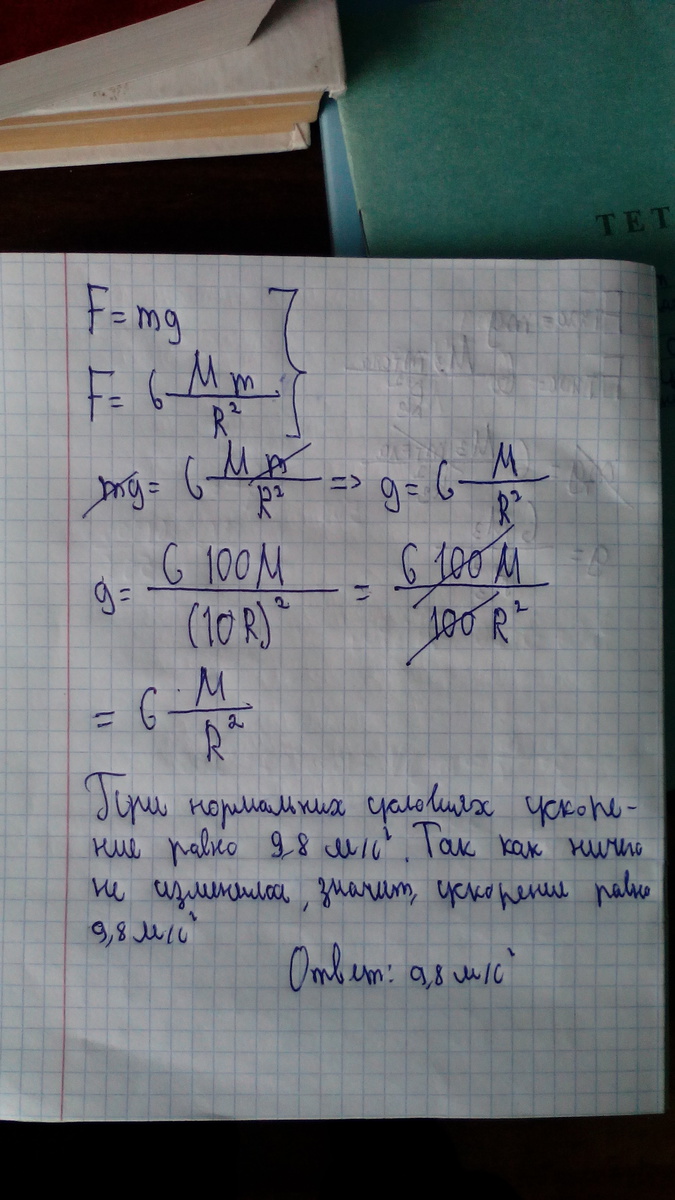 ТЕТ
F = mg
F = G \frac{M m}{R^2}
mg = G \frac{M m}{R^2} => g = G \frac{M}{R^2}
g = \frac{G 100 M}{(10 R)^2} = \frac{G 100 M}{100 R^2}
= G \frac{M}{R^2}
При нормальних условиях ускоре-
ние равно 9,8 м/с². Так как ничего
не изменилос, значит, ускорение равно
9,8 м/с²
Ответ: 9,8 м/с²